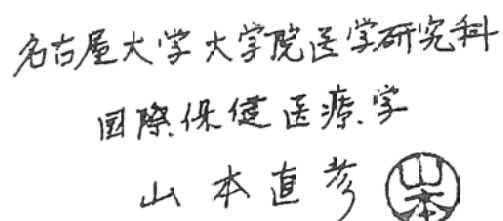 名古屋大学大学院医学研究科
国際保健医療学
山本直彦
山本